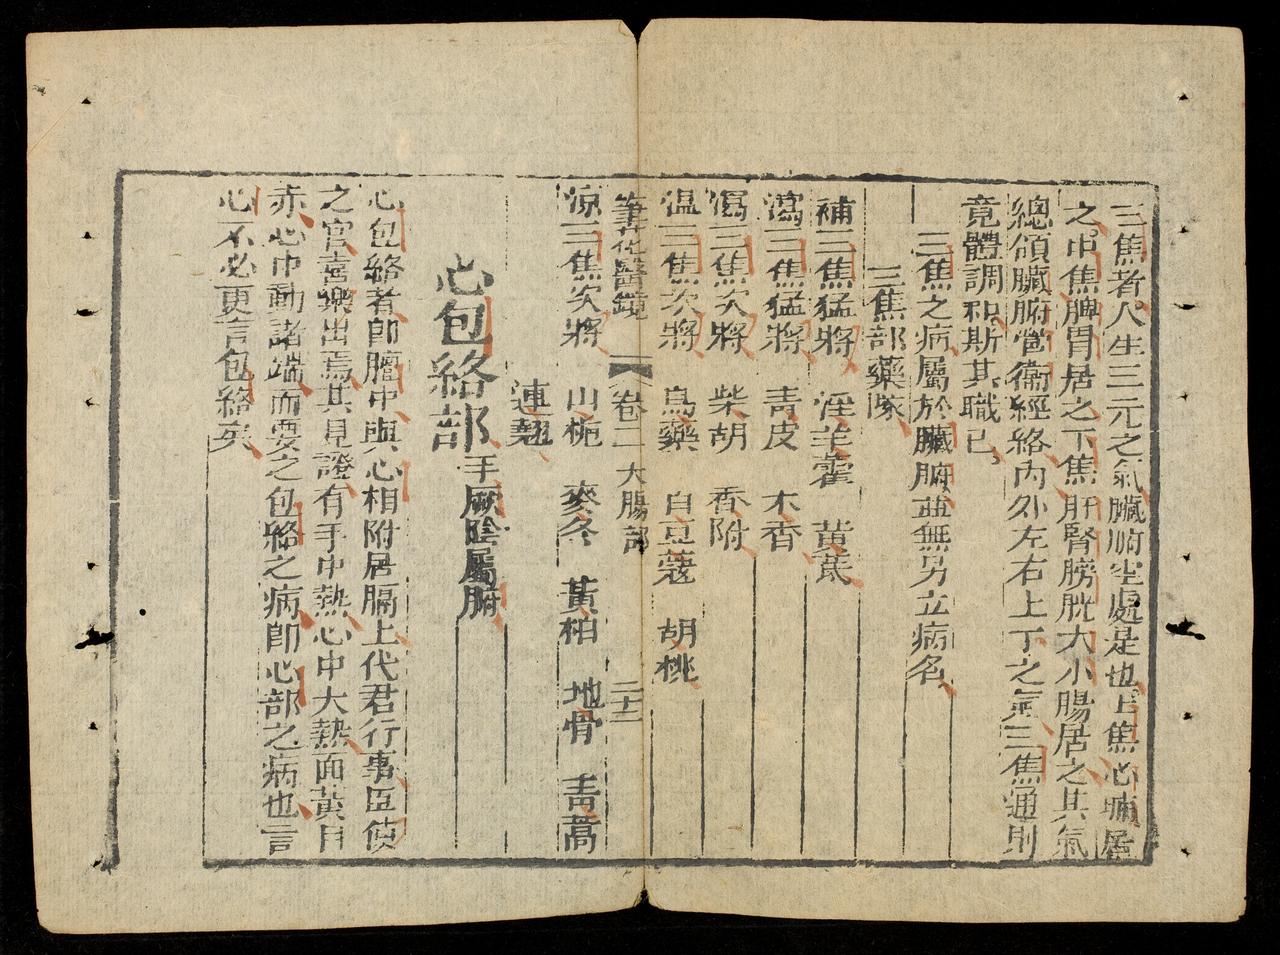 三焦者人生三元之氣臟腑空處是也上焦心肺居
之中焦脾胃居之下焦肝腎膀胱大小腸居之其氣
總領臟腑營衞經絡內外左右上下之氣三焦通則
竟體調和斯其職已
三焦之病屬於臟腑並無另立病名
三焦部藥隊
補三焦猛將 淫羊藿 黃芪
瀉三焦猛將 青皮 木香
瀉三焦次將 柴胡 香附
温三焦次將 烏藥 白豆蔻 胡桃
筆花醫鏡 卷二 大腸部 二十三
涼三焦次將 山梔 麥冬 黃柏 地骨 靑蒿
連翹
心包絡部 手厥陰屬腑
心包絡者卽膻中與心相附居膈上代君行事臣使
之官喜樂出焉其見證有手中熱心中大熱面黃目
赤心中動諸端而要之包絡之病卽心部之病也言
心不必更言包絡矣